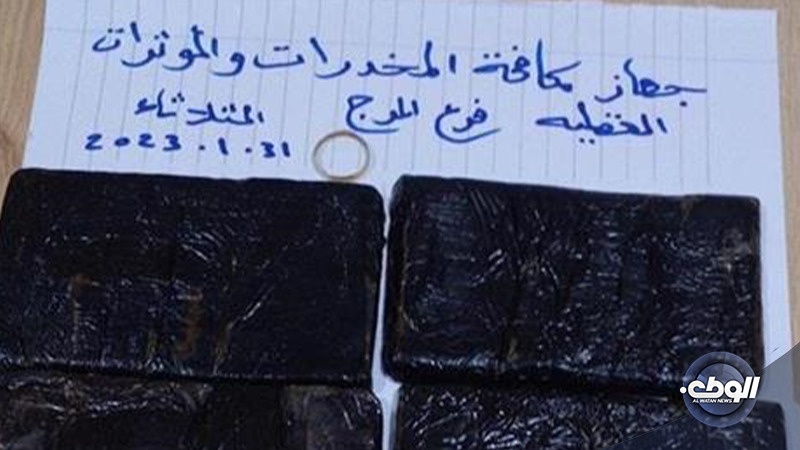 جهاز مكافحة المخدرات والمؤثرات
العقلية فرع المرج الثلاثاء
2023.1.31
الوطن
ALWATAN NEWS